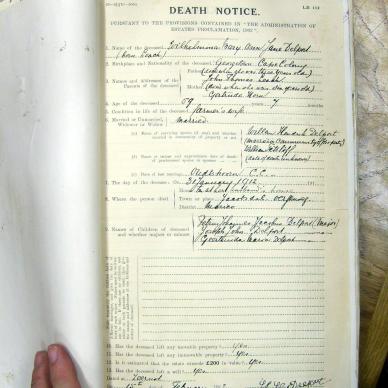 DEATH NOTICE.
PURSUANT TO THE PROVISIONS CONTAINED IN "THE ADMINISTRATION OF
ESTATES PROCLAMATION, 1902".
1. Name of the deceased Wilhelmina Mary Ann Jane Delport
(born Leach)
2. Birthplace and Nationality of the deceased Georgetown Cape Colony
3. Names and Addresses of the Parents of the deceased
Father
John Thomas Leach
Mother
Gertruida
4. Age of the deceased 59 years 7 months
5. Condition in life of the deceased Farmer's wife
6. Married or Unmarried, Widower or Widow Married
(a) Name of surviving spouse (if any) and whether married in community of property or not
Willem Hendrik Delport
(b) Name or names and approximate date of death of predeceased spouse or spouses
(c) Place of last marriage Oudtshoorn C.C.
7. The day of the decease, On 31 January 1912
8. Where the person died
House
Town or place
District Marico
9. Names of Children of deceased and whether majors or minors
John Thomas Joachim Delport (major)
Joseph John Delport
Geertruida Maria Delport
10. Has the deceased left any movable property? Yes.
11. Has the deceased left any immovable property? Yes.
12. Is it estimated that the estate exceeds £200 in value? Yes.
13. Has the deceased left a will? Yes
Dated at Zeerust
February